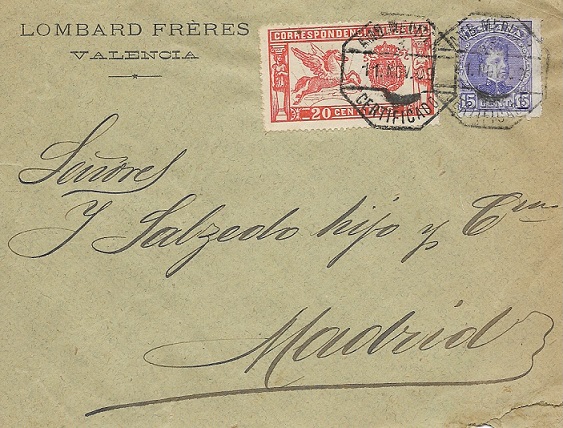 LOMBARD FRÈRES
VALENCIA
CORRESPONDENCIA
20
15 15
CERTIFICADO
CERTIFICADO
Señores
J Salzedo hijo y Cía
Madrid